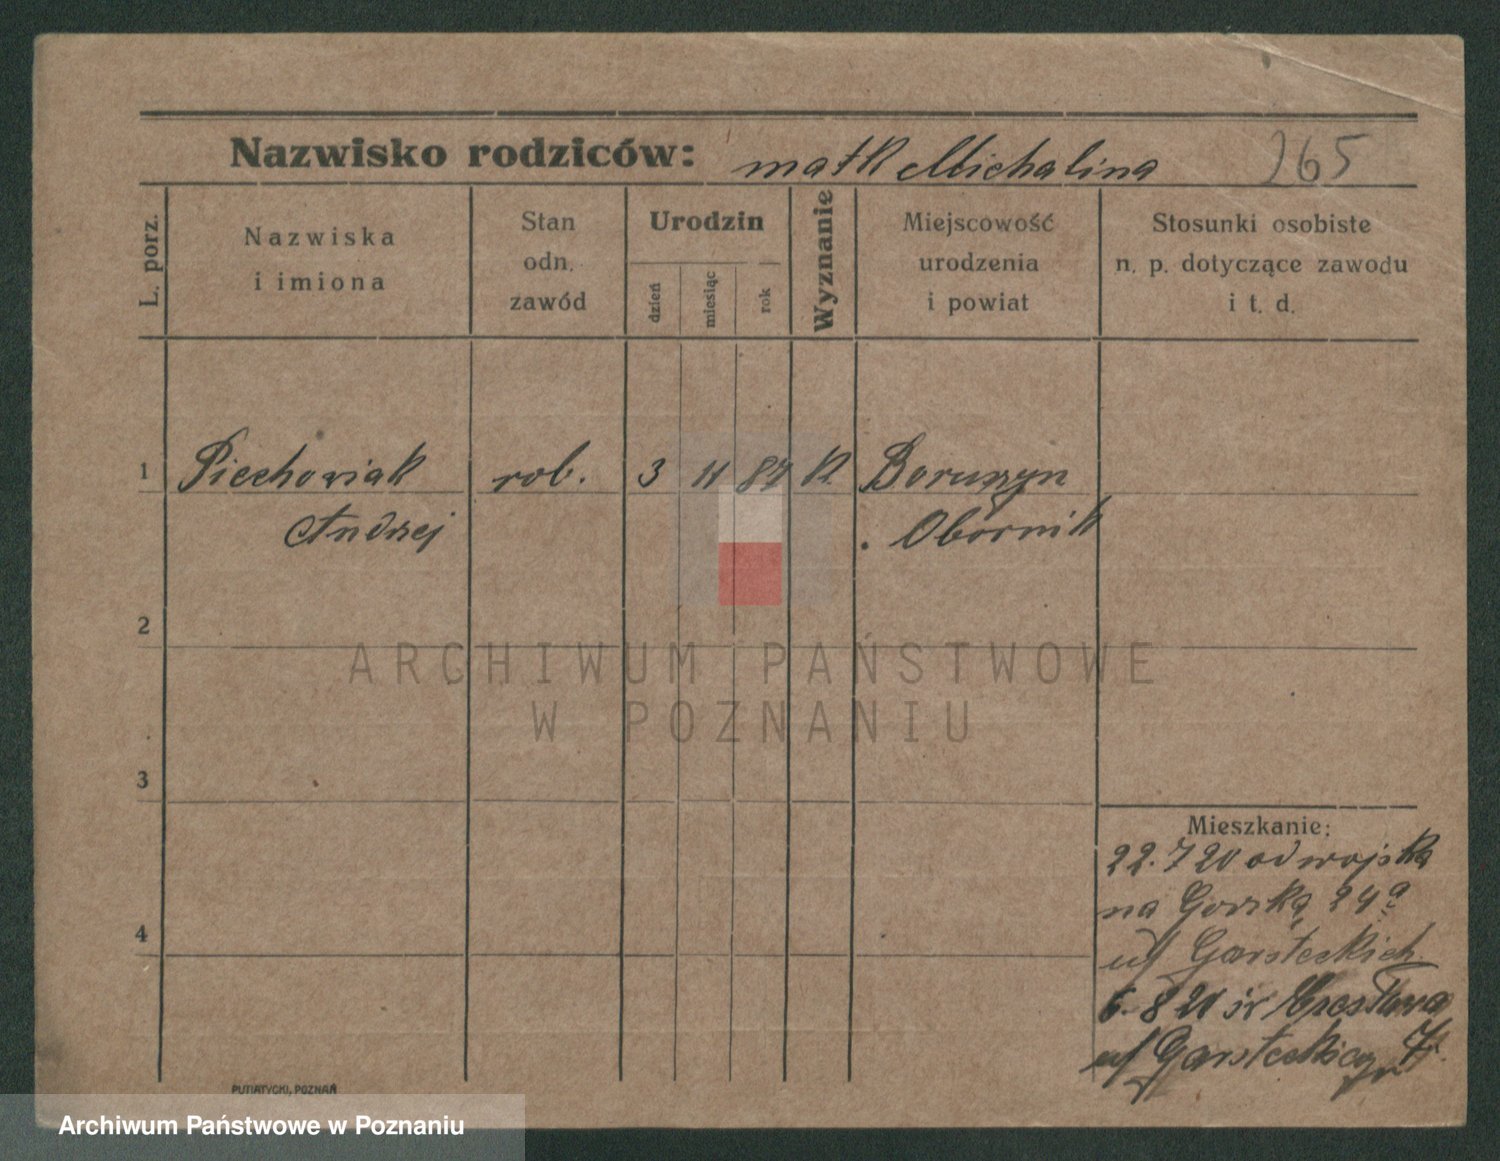 Nazwisko rodziców: matk Michalina 265
L. porz.
Nazwiska i imiona
Stan odn. zawód
Urodzin
dzień
miesiąc
rok
Wyznanie
Miejscowość urodzenia i powiat
Stosunki osobiste n. p. dotyczące zawodu i t. d.
1 Piechowiak rob. 3 11 87 K Boruszyn
Andrzej Obornik
2
ARCHIWUM PAŃSTWOWE
W POZNANIU
3
Mieszkanie:
22.7 20 od wojska
na Gorską 24a
u/ Garsteckich
4
6.8 20 św Czesława
u/ Garstecki
PUTIATYCKI, POZNAŃ
Archiwum Państwowe w Poznaniu